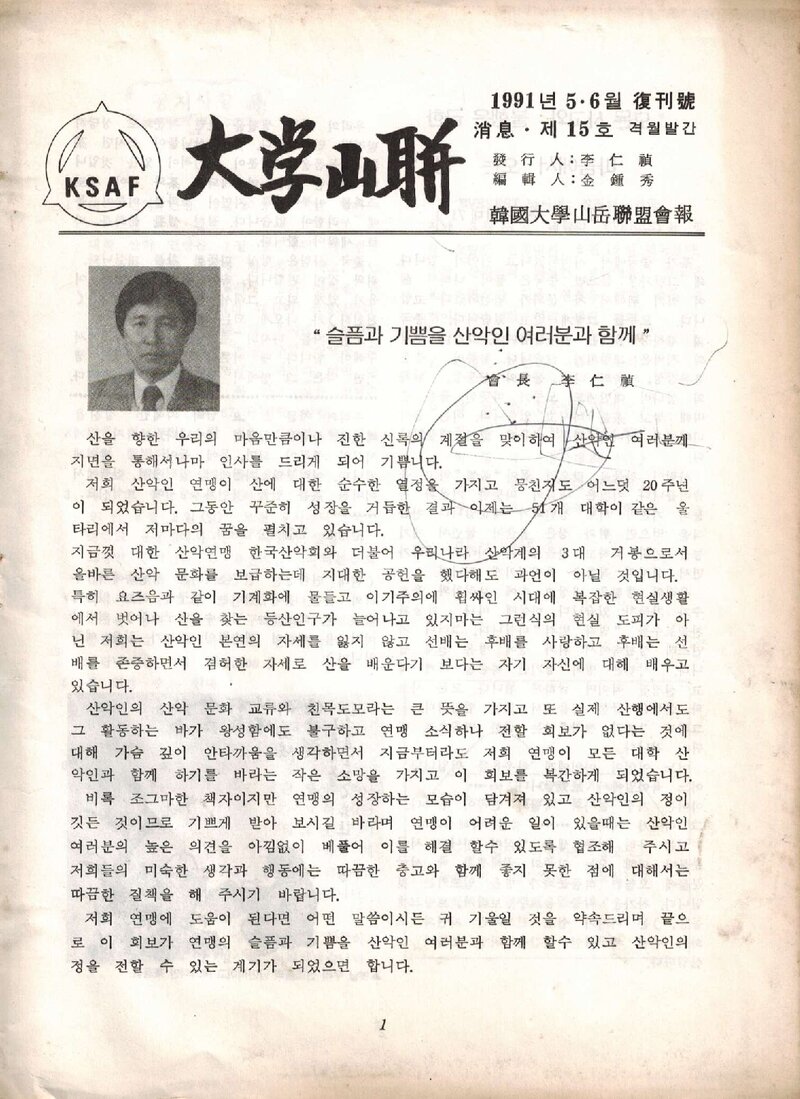 KSAF
大学山联
1991년 5·6월 復刊號
消息·제 15호 격월발간
發行人:李仁禎
編輯人:金鍾秀
韓國大學山岳聯盟會報
“ 슬픔과 기쁨을 산악인 여러분과 함께 ”
會長 李仁禎
산을 향한 우리의 마음만큼이나 진한 신록의 계절을 맞이하여 산악인 여러분께
지면을 통해서나마 인사를 드리게 되어 기쁩니다.
저희 산악인 연맹이 산에 대한 순수한 열정을 가지고 뭉친지도 어느덧 20주년
이 되었습니다. 그동안 꾸준히 성장을 거듭한 결과 이제는 51개 대학이 같은 울
타리에서 저마다의 꿈을 펼치고 있습니다.
지금껏 대한 산악연맹 한국산악회와 더불어 우리나라 산악계의 3대 거봉으로서
올바른 산악 문화를 보급하는데 지대한 공헌을 했다해도 과언이 아닐 것입니다.
특히 요즈음과 같이 기계화에 물들고 이기주의에 휩싸인 시대에 복잡한 현실생활
에서 벗어나 산을 찾는 등산인구가 늘어나고 있지마는 그런식의 현실 도피가 아
닌 저희는 산악인 본연의 자세를 잃지 않고 선배는 후배를 사랑하고 후배는 선
배를 존중하면서 겸허한 자세로 산을 배운다기 보다는 자기 자신에 대해 배우고
있습니다.
산악인의 산악 문화 교류와 친목도모라는 큰 뜻을 가지고 또 실제 산행에서도
그 활동하는 바가 왕성함에도 불구하고 연맹 소식하나 전할 회보가 없다는 것에
대해 가슴 깊이 안타까움을 생각하면서 지금부터라도 저희 연맹이 모든 대학 산
악인과 함께 하기를 바라는 작은 소망을 가지고 이 회보를 복간하게 되었습니다.
비록 조그마한 책자이지만 연맹의 성장하는 모습이 담겨져 있고 산악인의 정이
깃든 것이므로 기쁘게 받아 보시길 바라며 연맹이 어려운 일이 있을때는 산악인
여러분의 높은 의견을 아낌없이 베풀어 이를 해결 할수 있도록 협조해 주시고
저희들의 미숙한 생각과 행동에는 따끔한 충고와 함께 좋지 못한 점에 대해서는
따끔한 질책을 해 주시기 바랍니다.
저희 연맹에 도움이 된다면 어떤 말씀이시든 귀 기울일 것을 약속드리며 끝으
로 이 회보가 연맹의 슬픔과 기쁨을 산악인 여러분과 함께 할수 있고 산악인의
정을 전할 수 있는 계기가 되었으면 합니다.
1